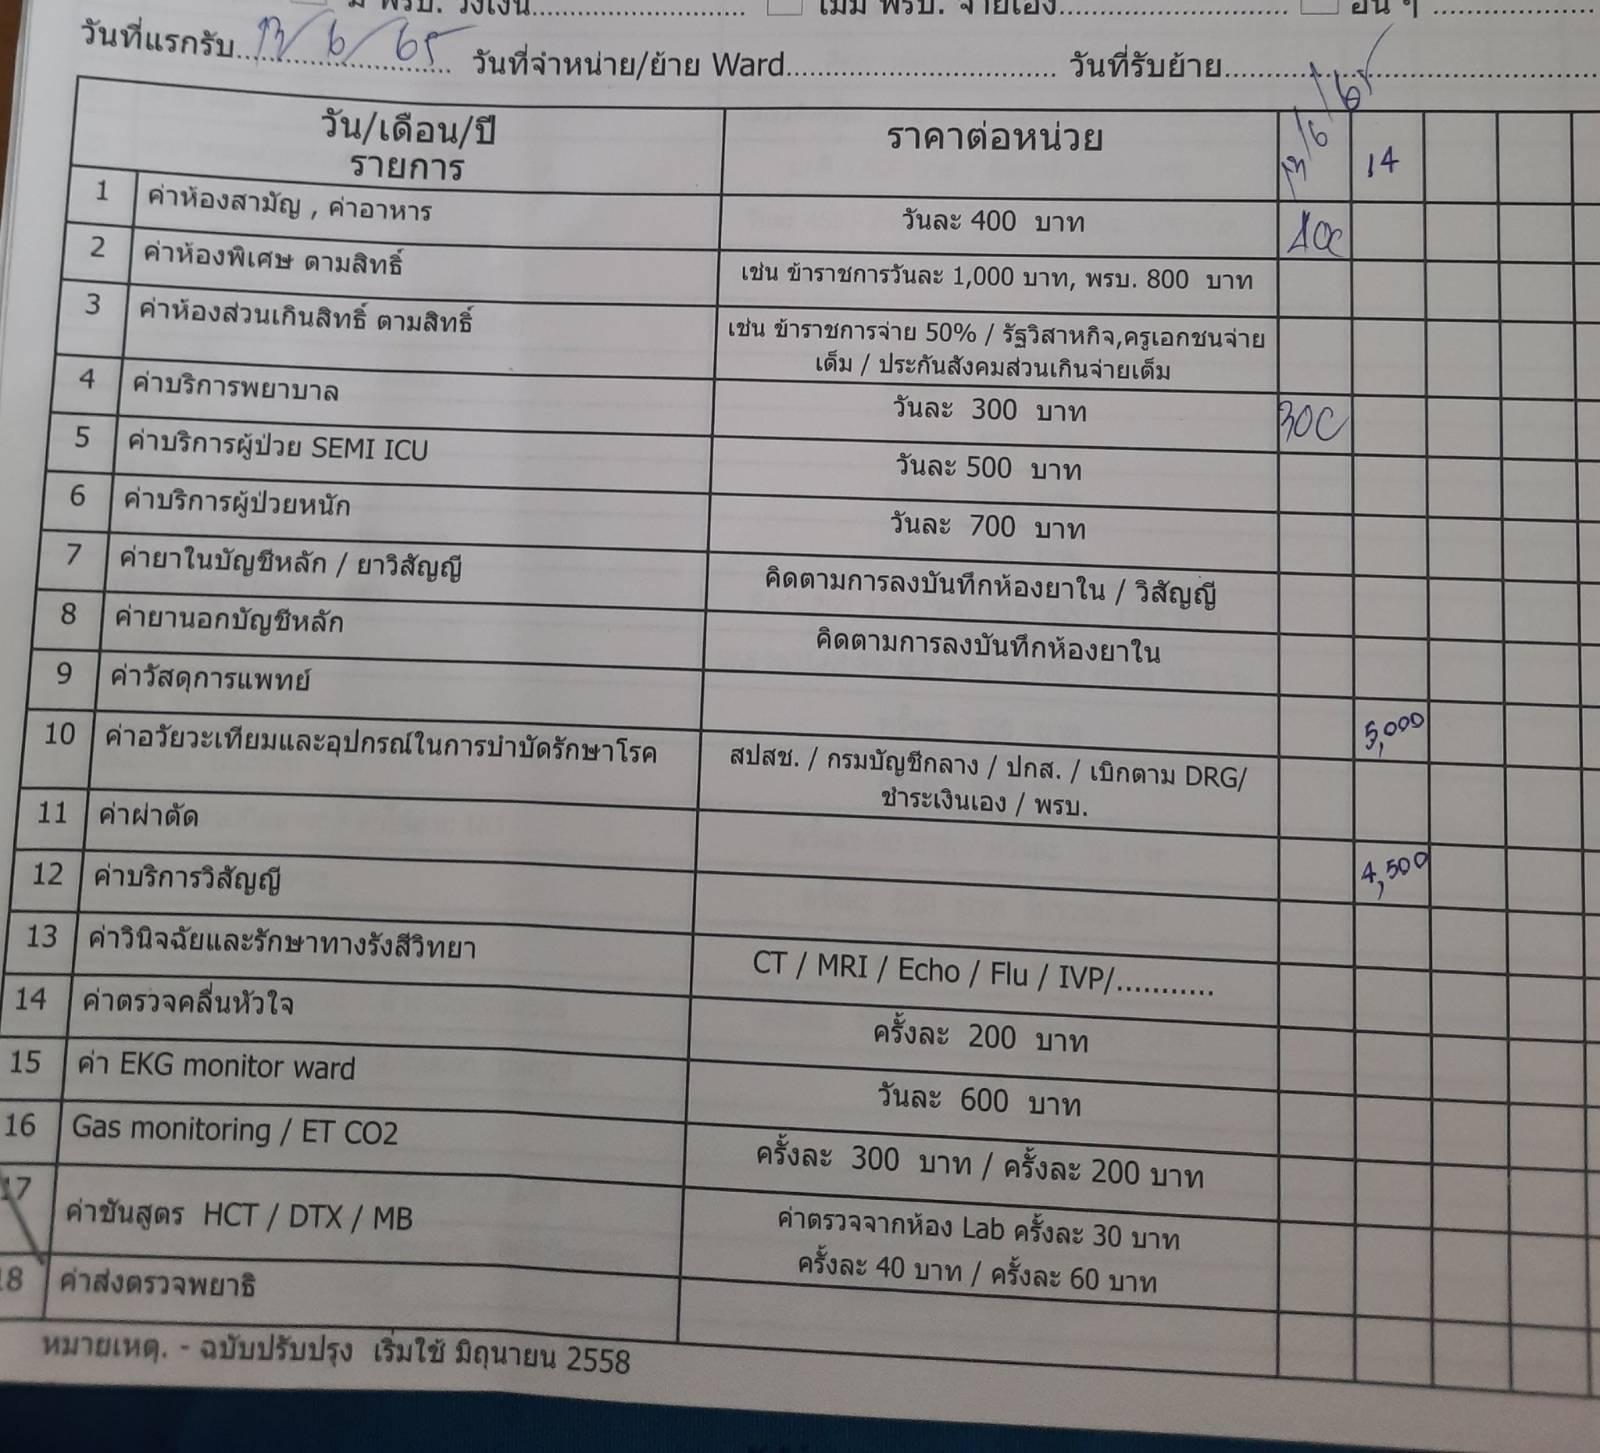 มี พรบ. วงเงิน.............................. ไม่มี พรบ. จ่ายเอง.............................. อื่น ๆ ....................
วันที่แรกรับ 13/6/65 วันที่จำหน่าย/ย้าย Ward.............................. วันที่รับย้าย..............................
วัน/เดือน/ปี
รายการ
ราคาต่อหน่วย 13/6/65 14
1 ค่าห้องสามัญ , ค่าอาหาร วันละ 400 บาท 400
2 ค่าห้องพิเศษ ตามสิทธิ์ เช่น ข้าราชการวันละ 1,000 บาท, พรบ. 800 บาท
3 ค่าห้องส่วนเกินสิทธิ์ ตามสิทธิ์ เช่น ข้าราชการจ่าย 50% / รัฐวิสาหกิจ,ครูเอกชนจ่าย
เต็ม / ประกันสังคมส่วนเกินจ่ายเต็ม
4 ค่าบริการพยาบาล วันละ 300 บาท 300
5 ค่าบริการผู้ป่วย SEMI ICU วันละ 500 บาท
6 ค่าบริการผู้ป่วยหนัก วันละ 700 บาท
7 ค่ายาในบัญชีหลัก / ยาวิสัญญี คิดตามการลงบันทึกห้องยาใน / วิสัญญี
8 ค่ายานอกบัญชีหลัก คิดตามการลงบันทึกห้องยาใน
9 ค่าวัสดุการแพทย์ 5,000
10 ค่าอวัยวะเทียมและอุปกรณ์ในการบำบัดรักษาโรค สปสช. / กรมบัญชีกลาง / ปกส. / เบิกตาม DRG/
ชำระเงินเอง / พรบ.
11 ค่าผ่าตัด 4,500
12 ค่าบริการวิสัญญี
13 ค่าวินิจฉัยและรักษาทางรังสีวิทยา CT / MRI / Echo / Flu / IVP/...........
14 ค่าตรวจคลื่นหัวใจ ครั้งละ 200 บาท
15 ค่า EKG monitor ward วันละ 600 บาท
16 Gas monitoring / ET CO2 ครั้งละ 300 บาท / ครั้งละ 200 บาท
17 ค่าชันสูตร HCT / DTX / MB ค่าตรวจจากห้อง Lab ครั้งละ 30 บาท
ครั้งละ 40 บาท / ครั้งละ 60 บาท
18 ค่าส่งตรวจพยาธิ
หมายเหตุ. - ฉบับปรับปรุง เริ่มใช้ มิถุนายน 2558